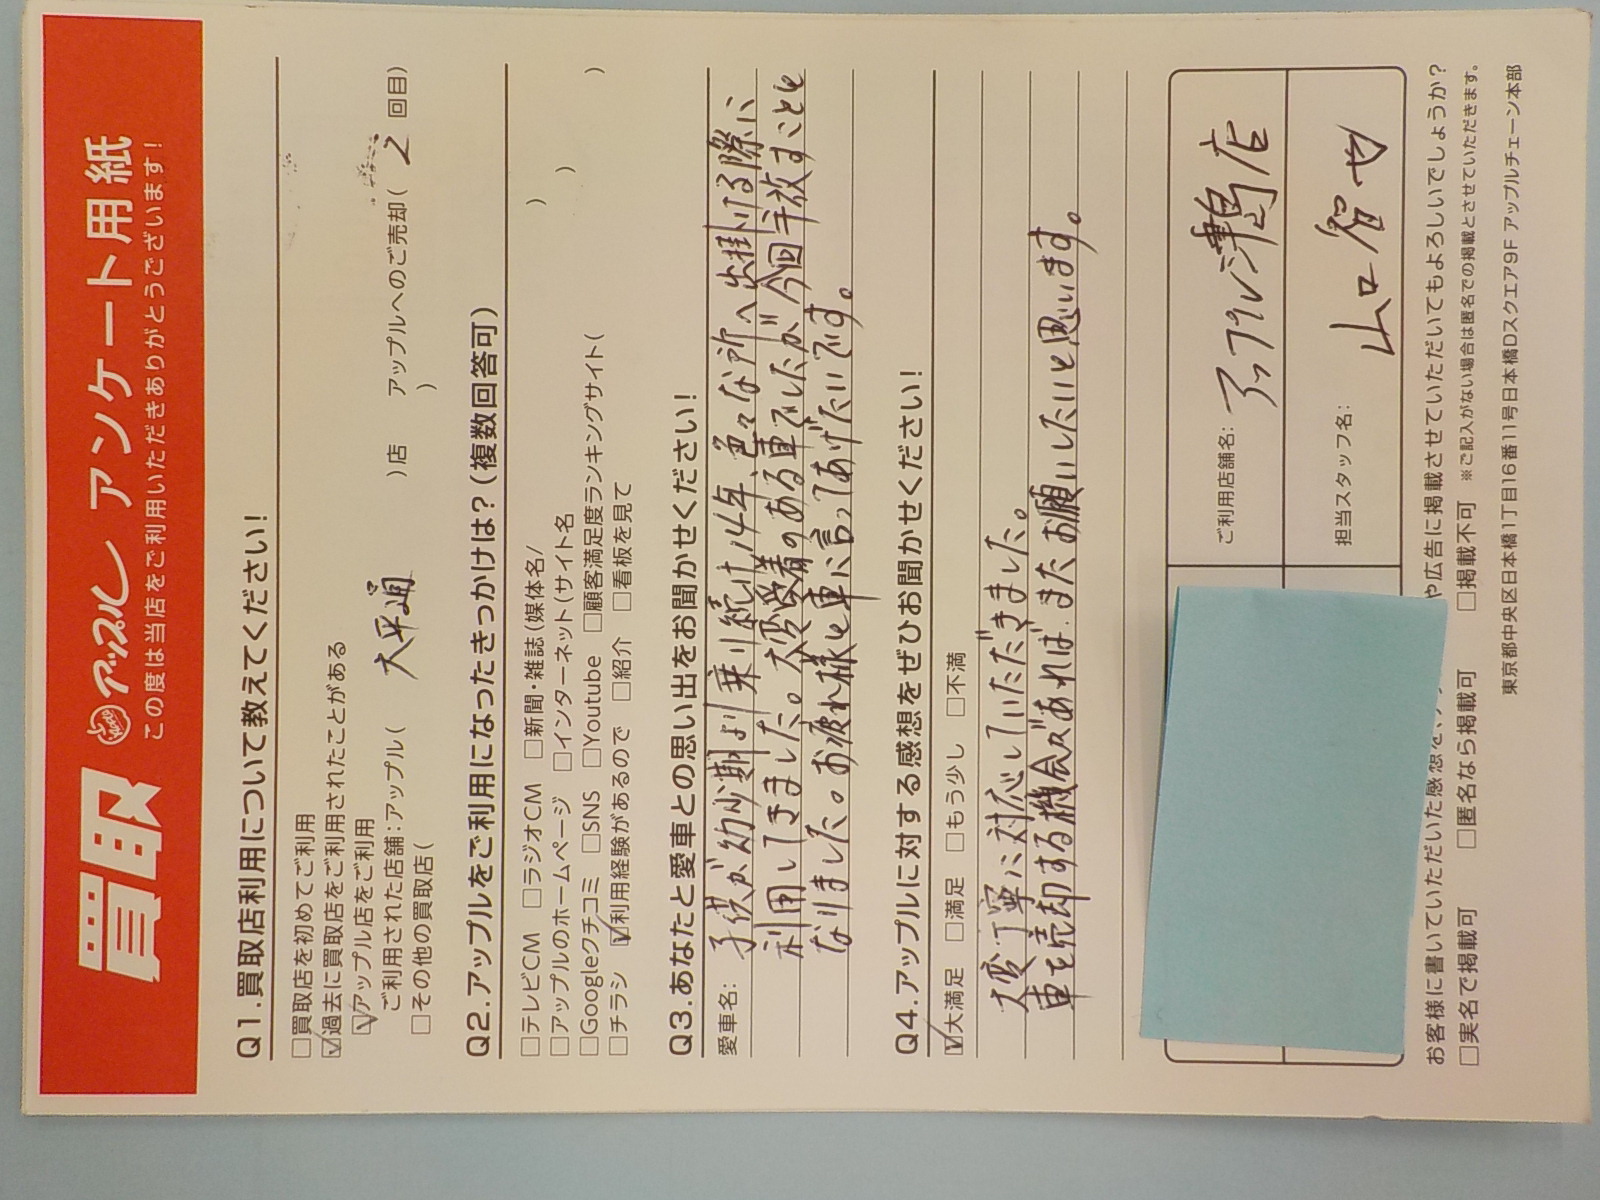 買取 アップル アンケート用紙
この度は当店をご利用いただきありがとうございます!
Q1.買取店利用について教えてください!
□買取店を初めてご利用
☑過去に買取店をご利用されたことがある
☑アップル店をご利用
ご利用された店舗:アップル( 大平通 )店 アップルへのご売却( 2 回目)
□その他の買取店( )
Q2.アップルをご利用になったきっかけは?(複数回答可)
□テレビCM □ラジオCM □新聞・雑誌(媒体名/ )
□アップルのホームページ □インターネット(サイト名 )
□Googleクチコミ □SNS □Youtube □顧客満足度ランキングサイト( )
□チラシ ☑利用経験があるので □紹介 □看板を見て
Q3.あなたと愛車との思い出をお聞かせください!
愛車名:
子供が幼少期より乗り続け14年、色々な所へ出掛ける際に
利用してきました。大変愛着のある車でしたが今回手放すことと
なりました。お疲れ様と車に言ってあげたいです。
Q4.アップルに対する感想をぜひお聞かせください!
☑大満足 □満足 □もう少し □不満
大変丁寧に対応していただきました。
車を売却する機会があれば、またお願いしたいと思います。
ご利用店舗名: アップル津島店
担当スタッフ名: 山口智也
お客様に書いていただいた感想を や広告に掲載させていただいてもよろしいでしょうか?
□実名で掲載可 □匿名なら掲載可 □掲載不可 ※ご記入がない場合は匿名での掲載とさせていただきます。
東京都中央区日本橋1丁目16番11号日本橋Dスクエア9F アップルチェーン本部